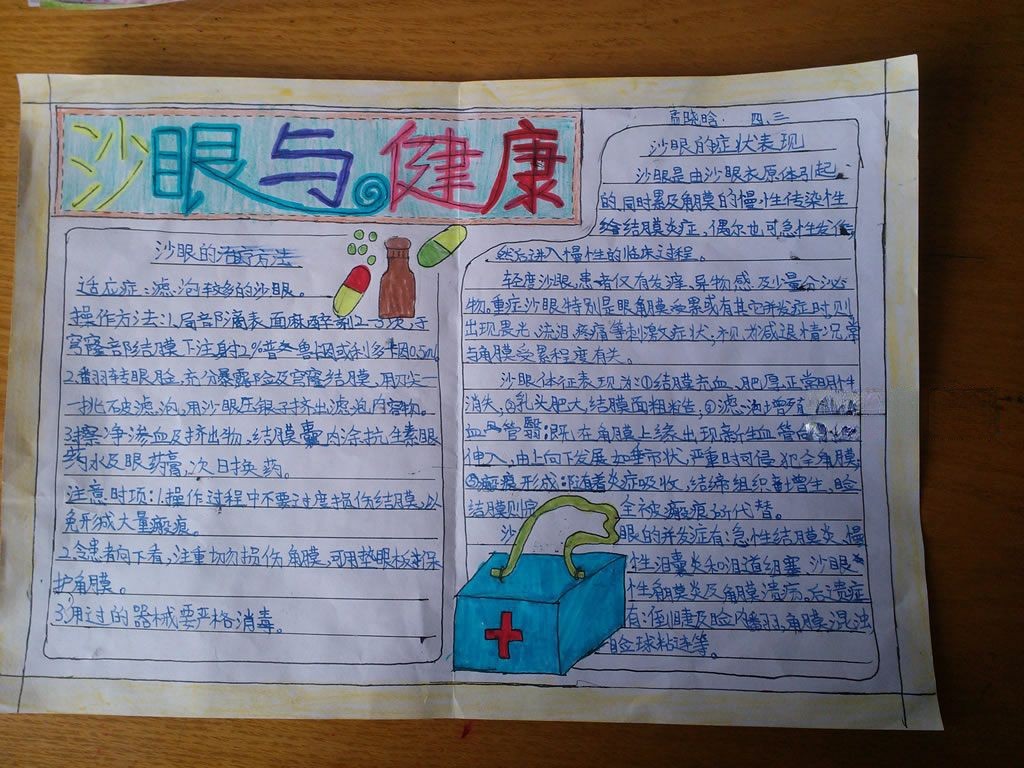 沙眼与健康
晓晗. 四.三
沙眼的治疗方法
适应症:滤泡较多的沙眼。
操作方法:1.局部滴表面麻醉剂2-3次,于
穹窿部结膜下注射2%普鲁因或利多卡因0.5ml
2.翻转眼脸,充分暴露睑及穹窿结膜,用尖一
一挑破滤泡,用沙眼压镊子挤出滤泡内容物。
3.擦净渗血及挤出物,结膜囊内涂抗生素眼
药水及眼药膏,次日换药。
注意时项:1.操作过程中不要过度损伤结膜,以
免形成大量瘢痕。
2.令患者向下看,注重切勿损伤角膜,可用垫眼板保
护角膜。
3.用过的器械要严格消毒。
沙眼的症状表现
沙眼是由沙眼衣原体引起
的,同时累及角膜的慢性传染性
结膜炎症,偶尔也可急性发作,
然后进入慢性的临床过程。
轻度沙眼,患者仅有发痒,异物感及少量分泌
物。重症沙眼特别是眼角膜受累或有其它并发症时,则
出现畏光、流泪、疼痛等刺激症状,视力减退情况常
与角膜受累程度有关。
沙眼体征表现为:①结膜充血,肥厚,正常
消失,②乳头肥大,结膜面粗糙,③滤泡增
血管翳:既在角膜上缘出现新生血管
伸入,由上向下发展如垂帘状,严重时可侵犯全角膜,
⑤瘢痕形成:随着炎症吸收,结缔组织增生,睑
结膜则完全被瘢痕所代替。
沙眼的并发症有:急性结膜炎、慢
性泪囊炎和泪道组塞、沙眼
性角膜炎及角膜溃疡,后遗症
有:倒睫及睑内翻,角膜混浊,
睑球粘连等。